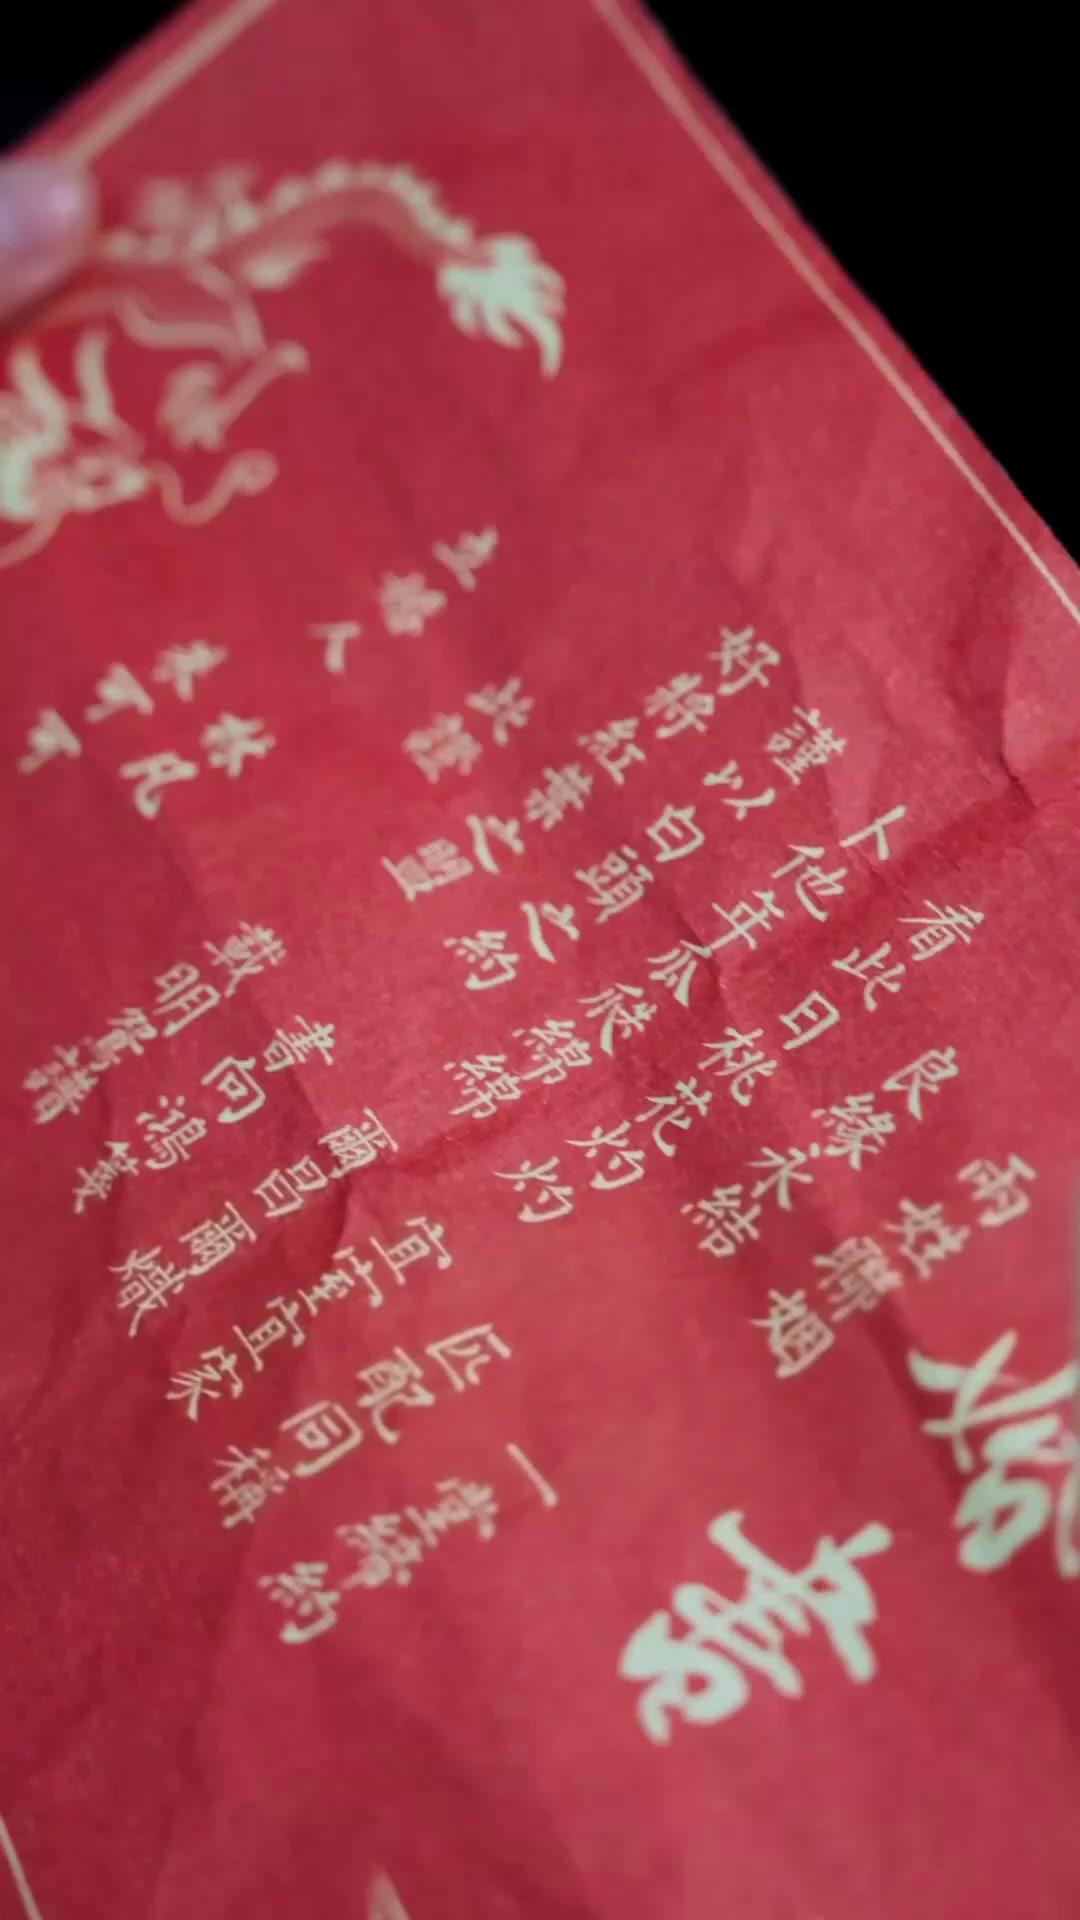 婚書
兩姓聯姻 一堂締約
良緣永結 匹配同稱
看此日桃花灼灼 宜室宜家
卜他年瓜瓞綿綿 爾昌爾熾
謹以白頭之約 書向鴻箋
好將紅葉之盟 載明鴛譜
此證
立婚人